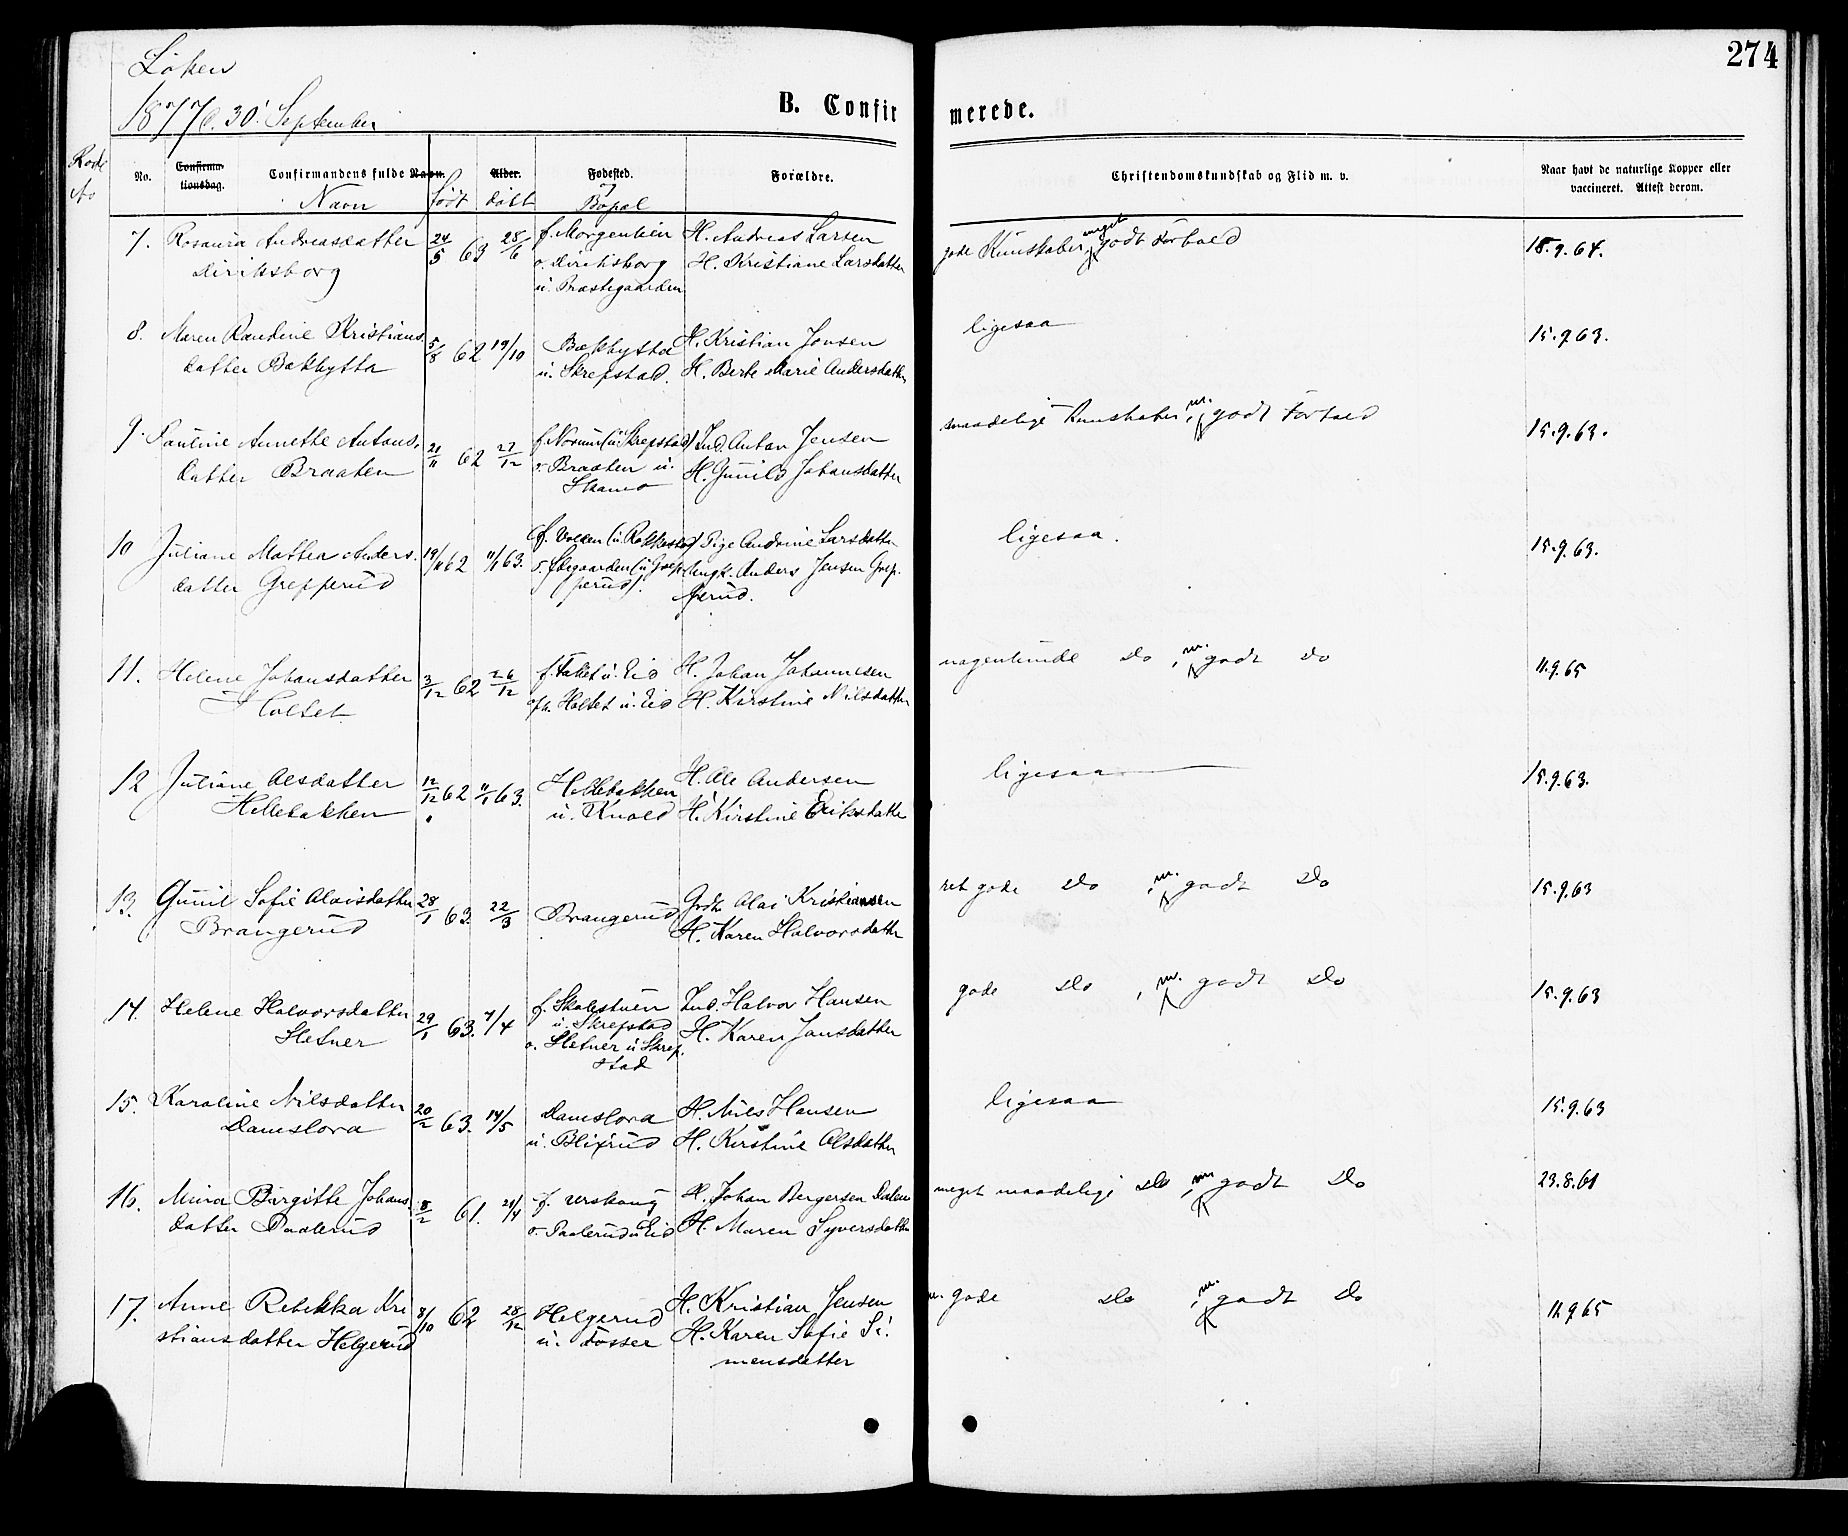 Löken
1877 d. 30' September
B. Confirmerede.
274
No.
Confirmationsdag.
Confirmandens fulde Navn.
Navn
Alder.
født
döbt
Fødested.
Bopæl
Forældre.
Christendomskundskab og Flid m. v.
Naar havt de naturlige Kopper eller vaccineret. Attest derom.
7. Rosaura Andreasdatter 24/5 63 28/6 f. Morgentien H. Andreas Larsen gode Kundskaber, meget godt Forhold 18.9.64.
Diriksborg o. Diriksborg H. Kristiane Larsdatter
u. Præstegaarden
8. Maren Randine Kristians 5/8 62 19/10 Bakhytta H. Kristian Jonsen ligesaa 15.9.63.
datter Bakhytta u. Skrepstad. H. Berte Marie Andersdatter
9. Pauline Annette Antons. 21/11 62 27/12 f. Norum (u Skrepstad) Ind. Anton Jensen maadelige Kundskaber, m. godt Forhold 15.9.63.
datter Braaten o. Braaten u. H. Gunild Johansdatter
10 Juliane Mathea Anders. 19/11 62 11/1 63. f. Volden (u Rakkestad) Pige Andrine Larsdatter ligesaa. 15.9.63.
datter Grepperud o. Ødegaarden (u Grep- Ungk. Anders Jensen Grep-
perud). perud.
11. Helene Johansdatter 3/12 62 26/12 H. Johan Johannesen nogenlunde Do, m. godt Do 11.9.65
Holtet oph. Holtet u. Eid H. Kirstine Nilsdatter
12 Juliane Olsdatter 12/12 62 11/1 63. Hellebakken H. Ole Andersen ligesaa 15.9.63.
Hellebakken u. Knold H. Kirstine Eriksdatter
13. Gunil Sofie Olaisdatter 28/1 63. 22/3 Brangerud Olai Kristiansen ret gode Do, m. godt Do 15.9.63
Brangerud H. Karen Halvorsdatter
14. Helene Halvorsdatter 29/1 63. 7/4 f. Skolestuen Ind. Halvor Hansen gode Do, m. godt Do 15.9.63
Sletner u. Skrepstad H. Karen Jansdatter
o. Sletner u Skrep-
stad
15. Karoline Nilsdatter 20/2 63. 14/5 Damslora H. Nils Hansen ligesaa 15.9.63
Damslora u. Blixrud H. Kirstine Olsdatter
16. Mina Birgitte Johans. 8/2 61. 21/4 H. Johan Bergersen Dalen meget maadelige Do, m. godt Do 23.8.61
datter Paalerud o. Paalerud u Eid H. Maren Syversdatter
17. Anne Rebekka Kri 8/10 62 28/12 Helgerud H. Kristian Jensen m. gode Do, m. godt Do 11.9.65
stiansdatter Helgerud u. Fosser H. Karen Sofie Si-
mensdatter